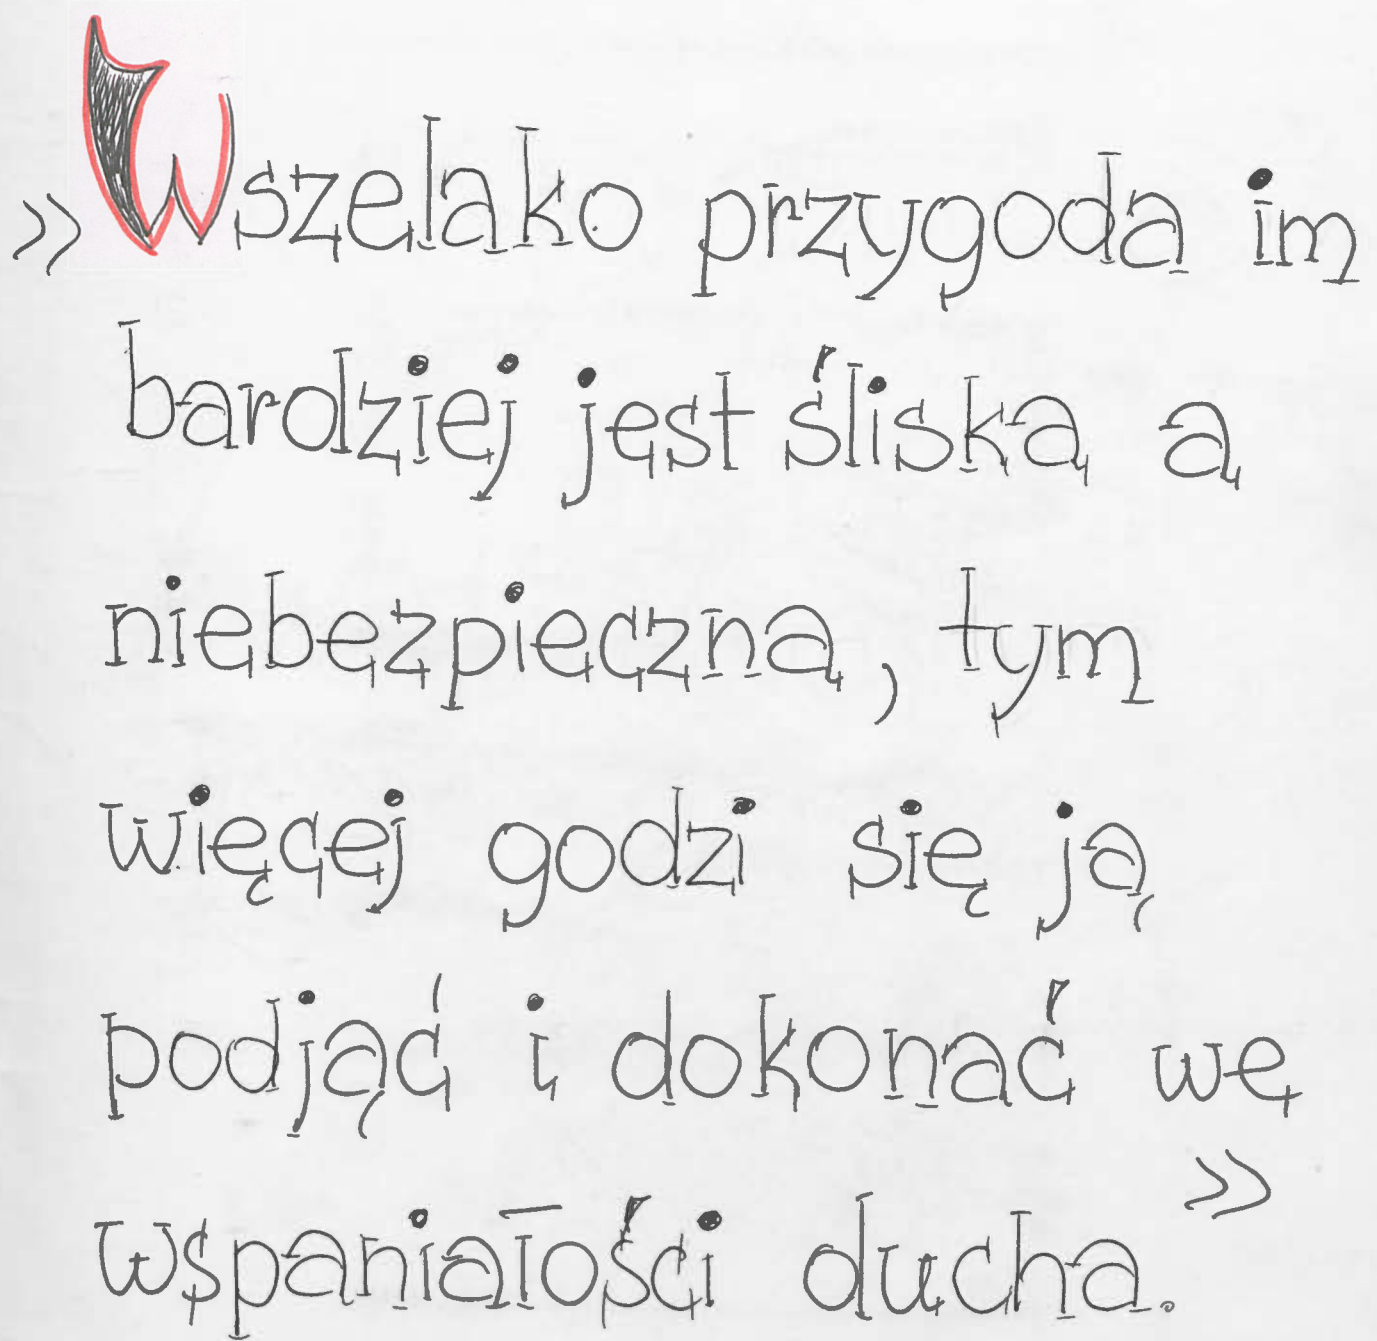 »Wszelako przygoda im
bardziej jest śliska a
niebezpieczna, tym
więcej godzi się ją
podjąć i dokonać we
wspaniałości ducha.»